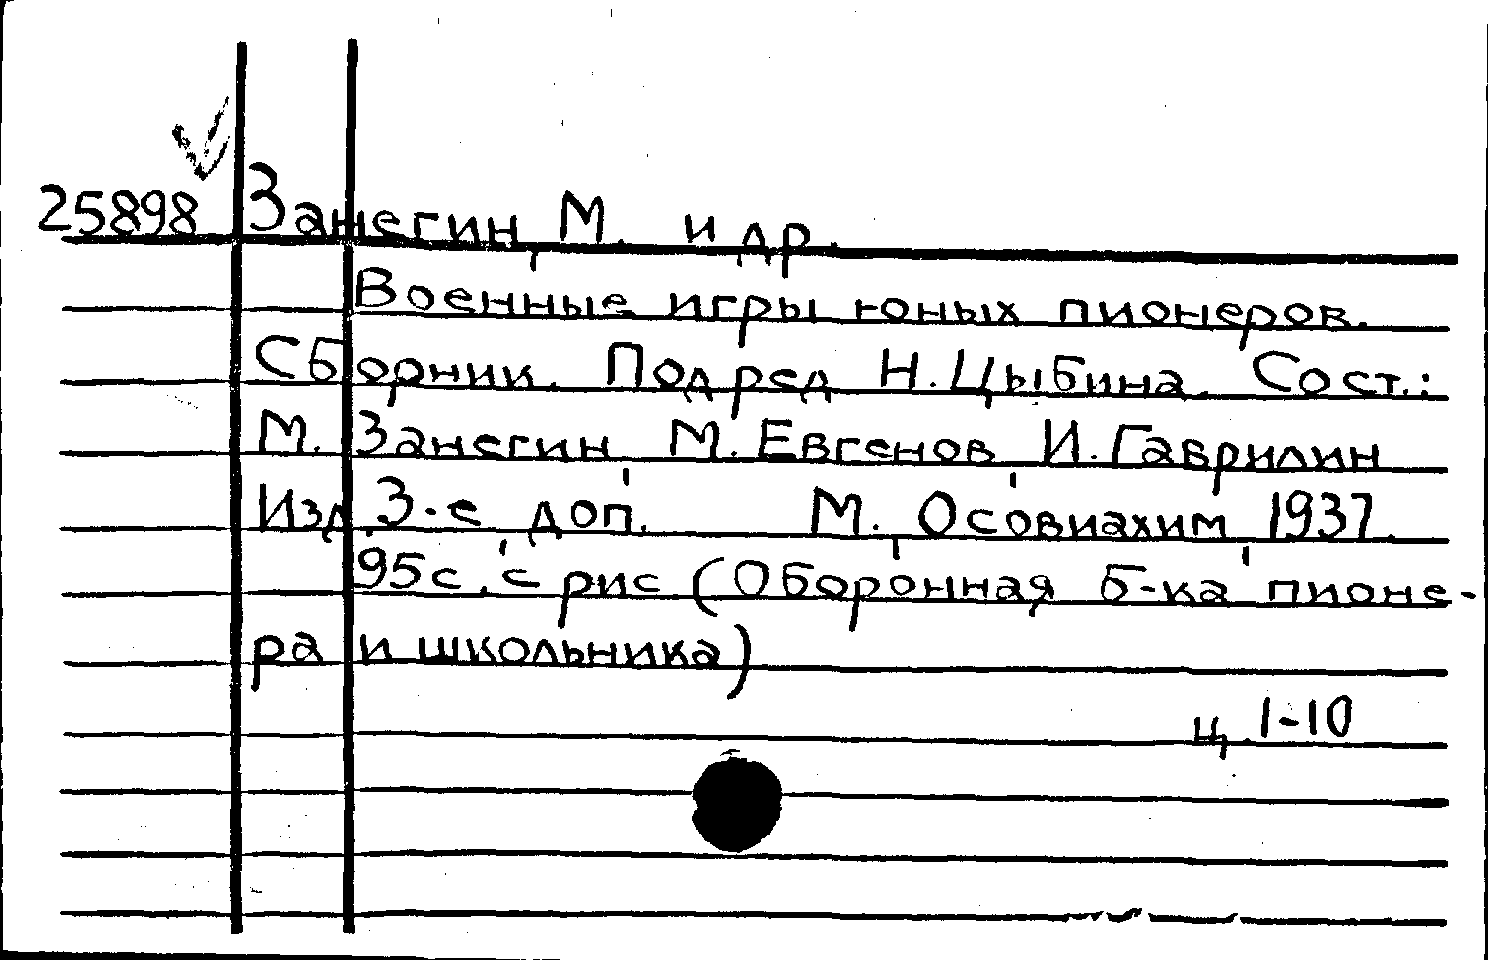 25898 Занегин, М. и др.
Военные игры юных пионеров.
Сборник. Под ред Н. Цыбина. Сост.:
М. Занегин, М. Евгенов, И. Гаврилин
Изд. 3-е, доп. М., Осовиахим, 1937.
95с., с рис (Оборонная б-ка пионе-
ра и школьника)
ц. 1-10